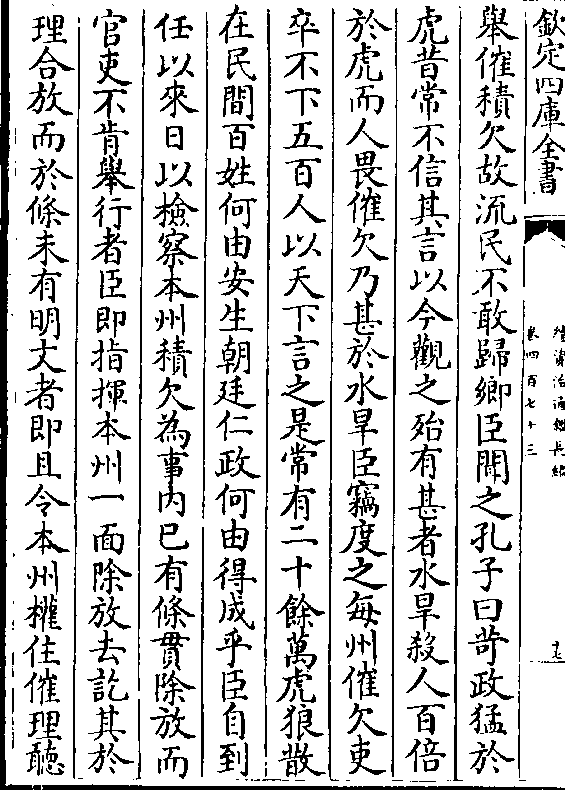 欽定四庫全書
續資治通鑑長編
卷四百七十三
舉催積欠故流民不敢歸鄉臣聞之孔子曰苛政猛於
虎昔常不信其言以今觀之殆有甚者水旱殺人百倍
於虎而人畏催欠乃甚於水旱臣竊度之每州催欠吏
卒不下五百人以天下言之是常有二十餘萬虎狼散
在民間百姓何由安生朝廷仁政何由得成乎臣自到
任以來日以檢察本州積欠為事内已有條貫除放而
官吏不肯舉行者臣即指揮本州一面除放去訖其於
理合放而於條未有明文者即且令本州權住催理聽